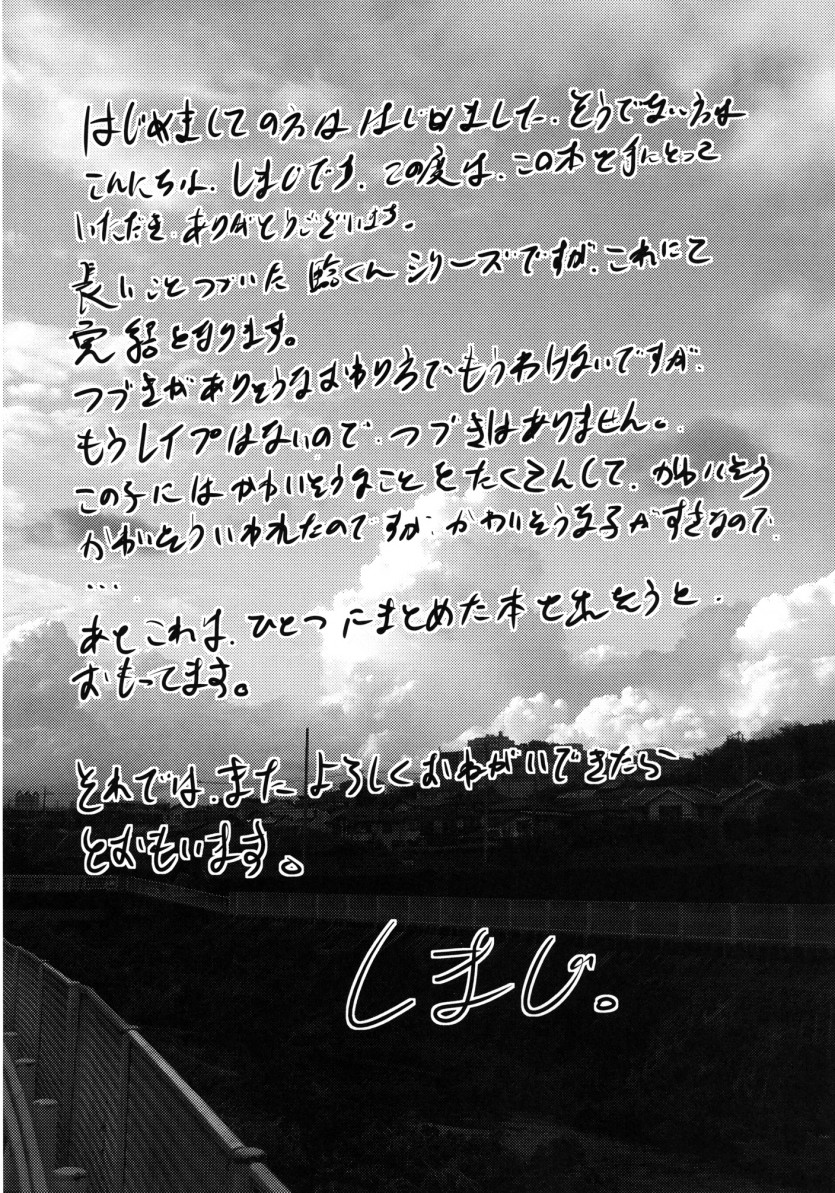 はじめましての方は はじめました、そうでない方は
こんにちは、しまじです。この度は、この本を手にとって
いただき、ありがとうございます。
長いことつづいた 臨くん シリーズですが、これにて
完結となります。
つづきがありそうなおわり方でもうわけないですが、
もうレイプはないので、つづきはありません。
この子にはかわいそうなことをたくさんして、かわいそう
かわいそういわれたのですが、かわいそうな子がすきなので、
...
あと これは、ひとつ にまとめた本を出そうと、
おもってます。
それでは、また よろしくおねがいできたら
とおもいます。
しまじ。